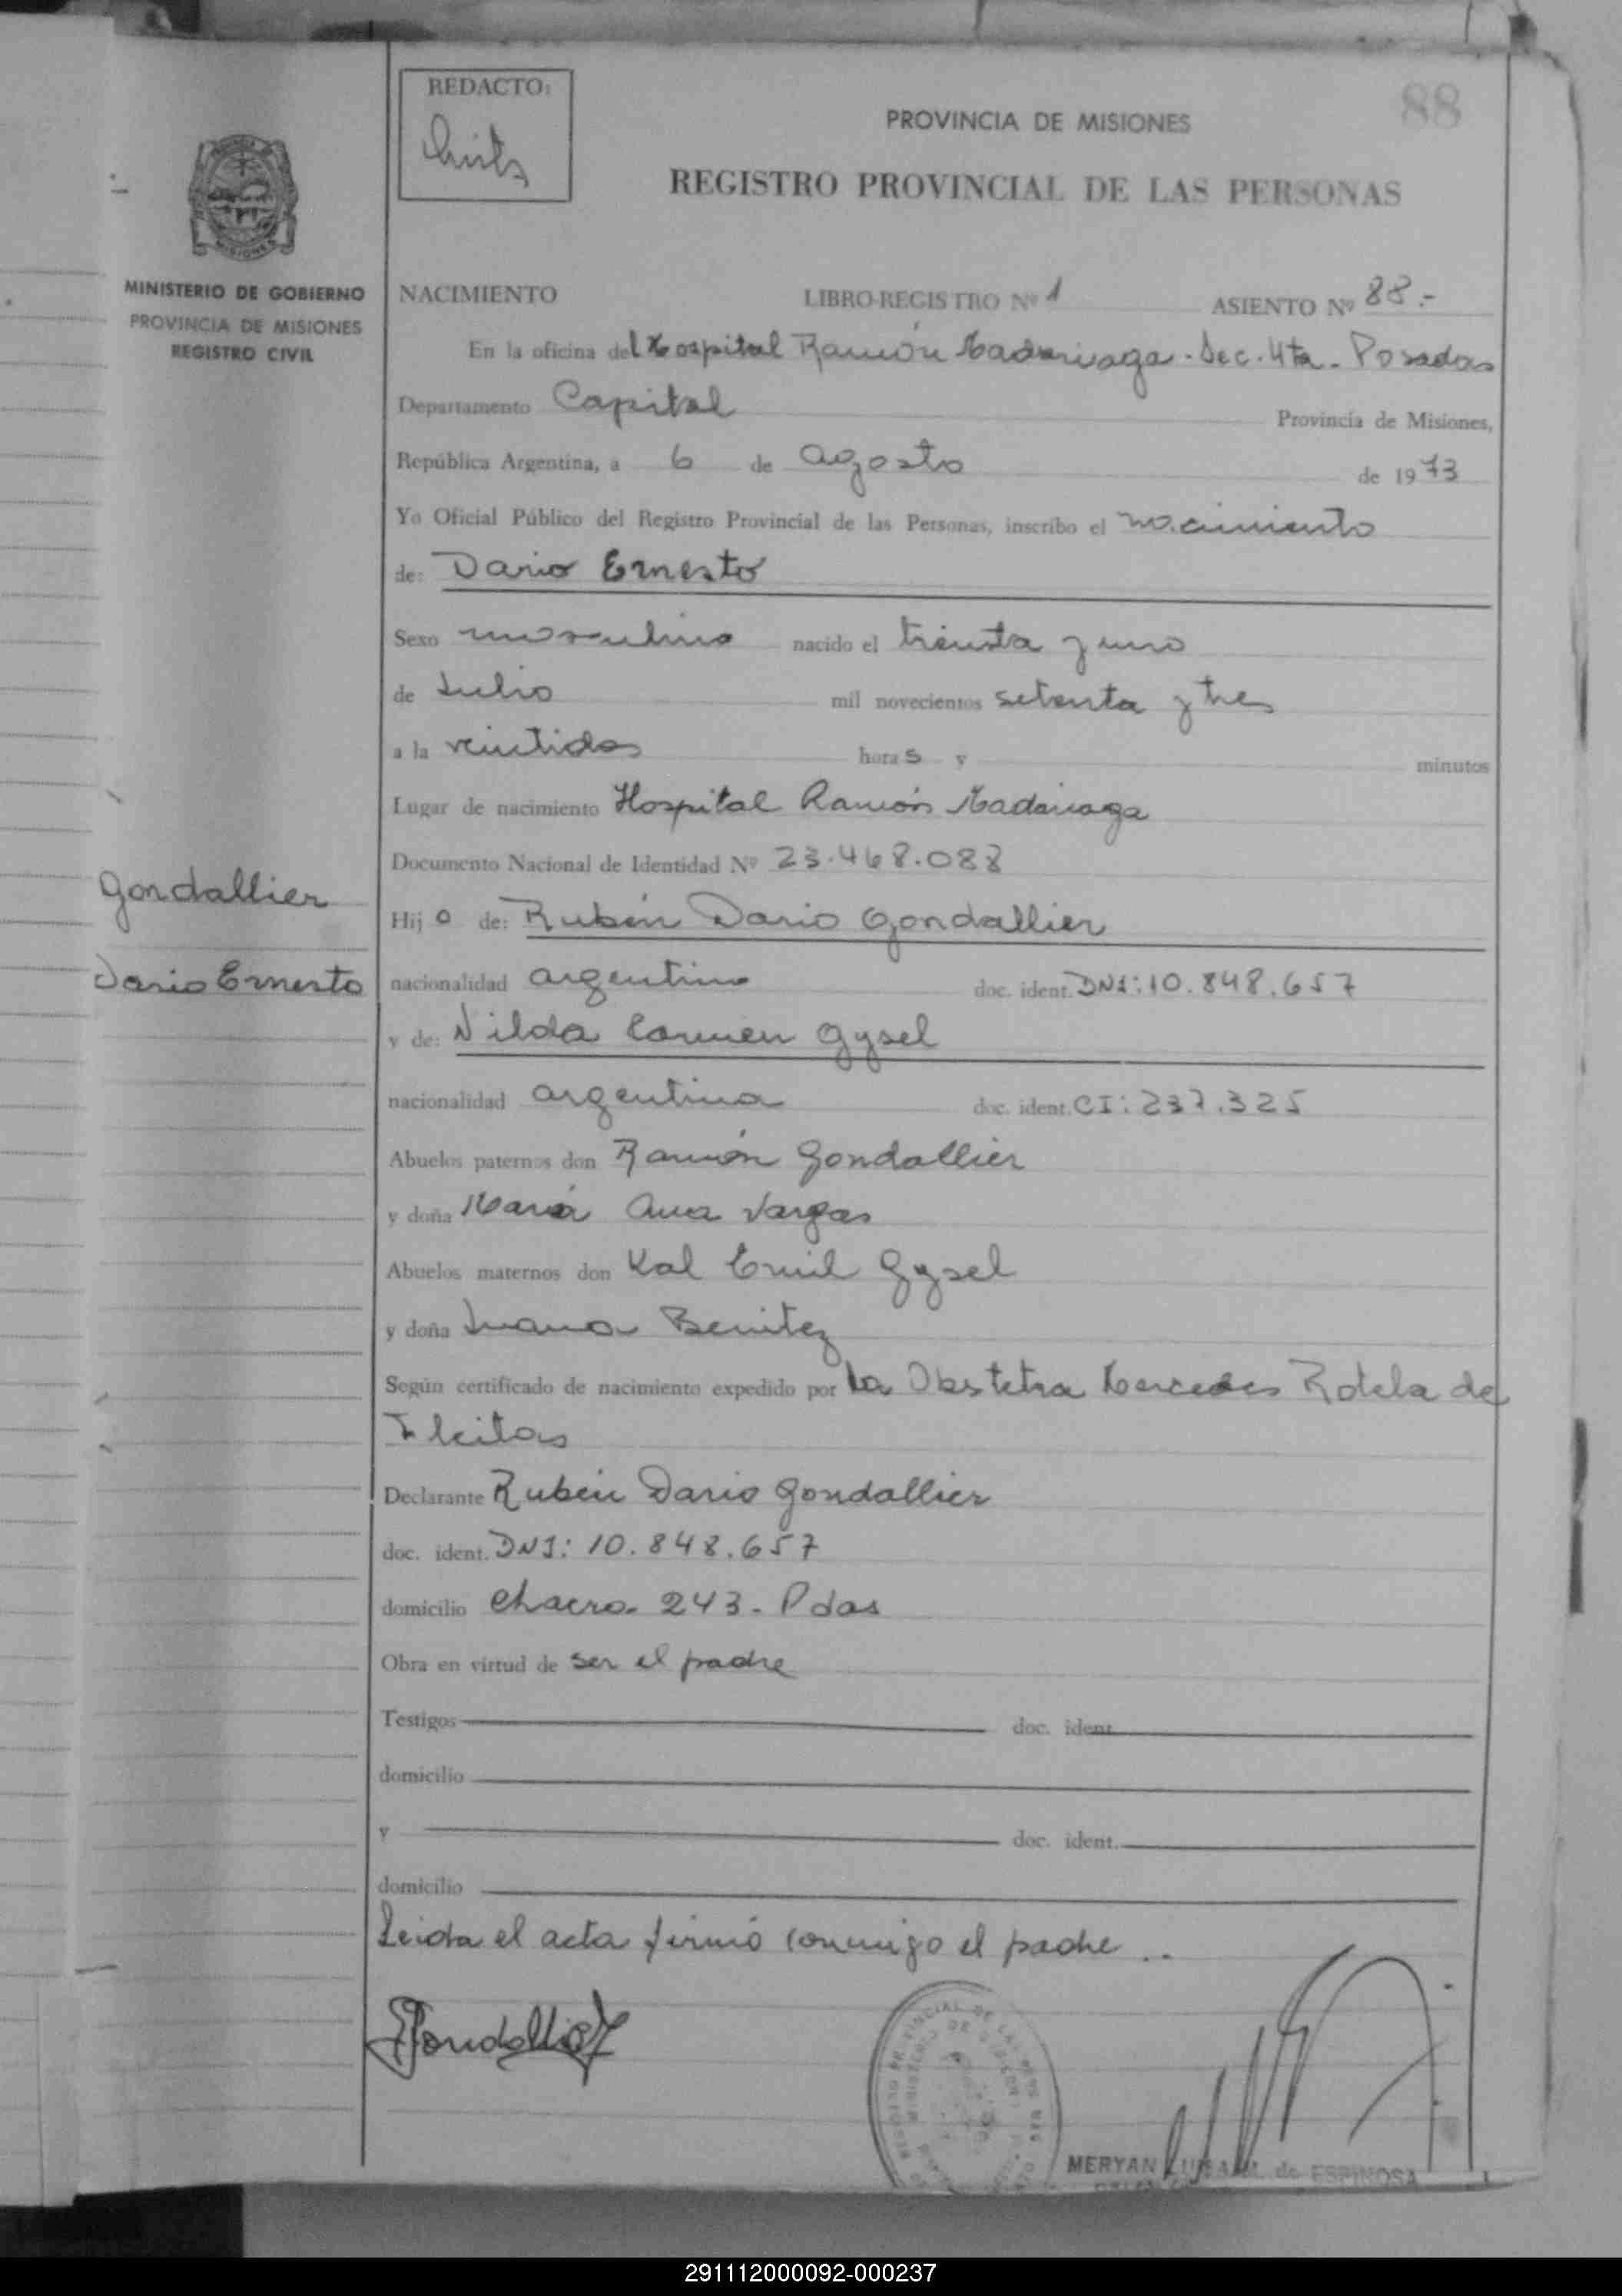 REDACTO:
88
PROVINCIA DE MISIONES
REGISTRO PROVINCIAL DE LAS PERSONAS
MINISTERIO DE GOBIERNO
PROVINCIA DE MISIONES
REGISTRO CIVIL
NACIMIENTO LIBRO-REGISTRO Nº 1 ASIENTO Nº 88.-
En la oficina del Hospital Ramón Madariaga - Sec. 4ta - Posadas
Departamento Capital Provincia de Misiones,
República Argentina, a 6 de agosto de 1973
Yo Oficial Público del Registro Provincial de las Personas, inscribo el nacimiento
de: Dario Ernesto
Sexo masculino nacido el treinta y uno
de Julio mil novecientos setenta y tres
a la veintidos horas y minutos
Lugar de nacimiento Hospital Ramón Madariaga
Documento Nacional de Identidad Nº 23.468.088
Gondallier
Hijo de: Rubén Dario Gondallier
Dario Ernesto
nacionalidad argentino doc. ident. DNI: 10.848.657
y de: Nilda Carmen Gysel
nacionalidad argentina doc. ident. CI: 237.325
Abuelos paternos don Ramón Gondallier
y doña María Ana Vargas
Abuelos maternos don Kal Emil Gysel
y doña Juana Benitez
Según certificado de nacimiento expedido por la Obstetra Mercedes Rotela de
Fleitas
Declarante Rubén Dario Gondallier
doc. ident. DNI: 10.848.657
domicilio Chacra 243 - Pdas
Obra en virtud de ser el padre
Testigos doc. ident.
domicilio
y doc. ident.
domicilio
Leida el acta firmó conmigo el padre ..
Gondallier
MERYAN de ESPINOSA
291112000092-000237